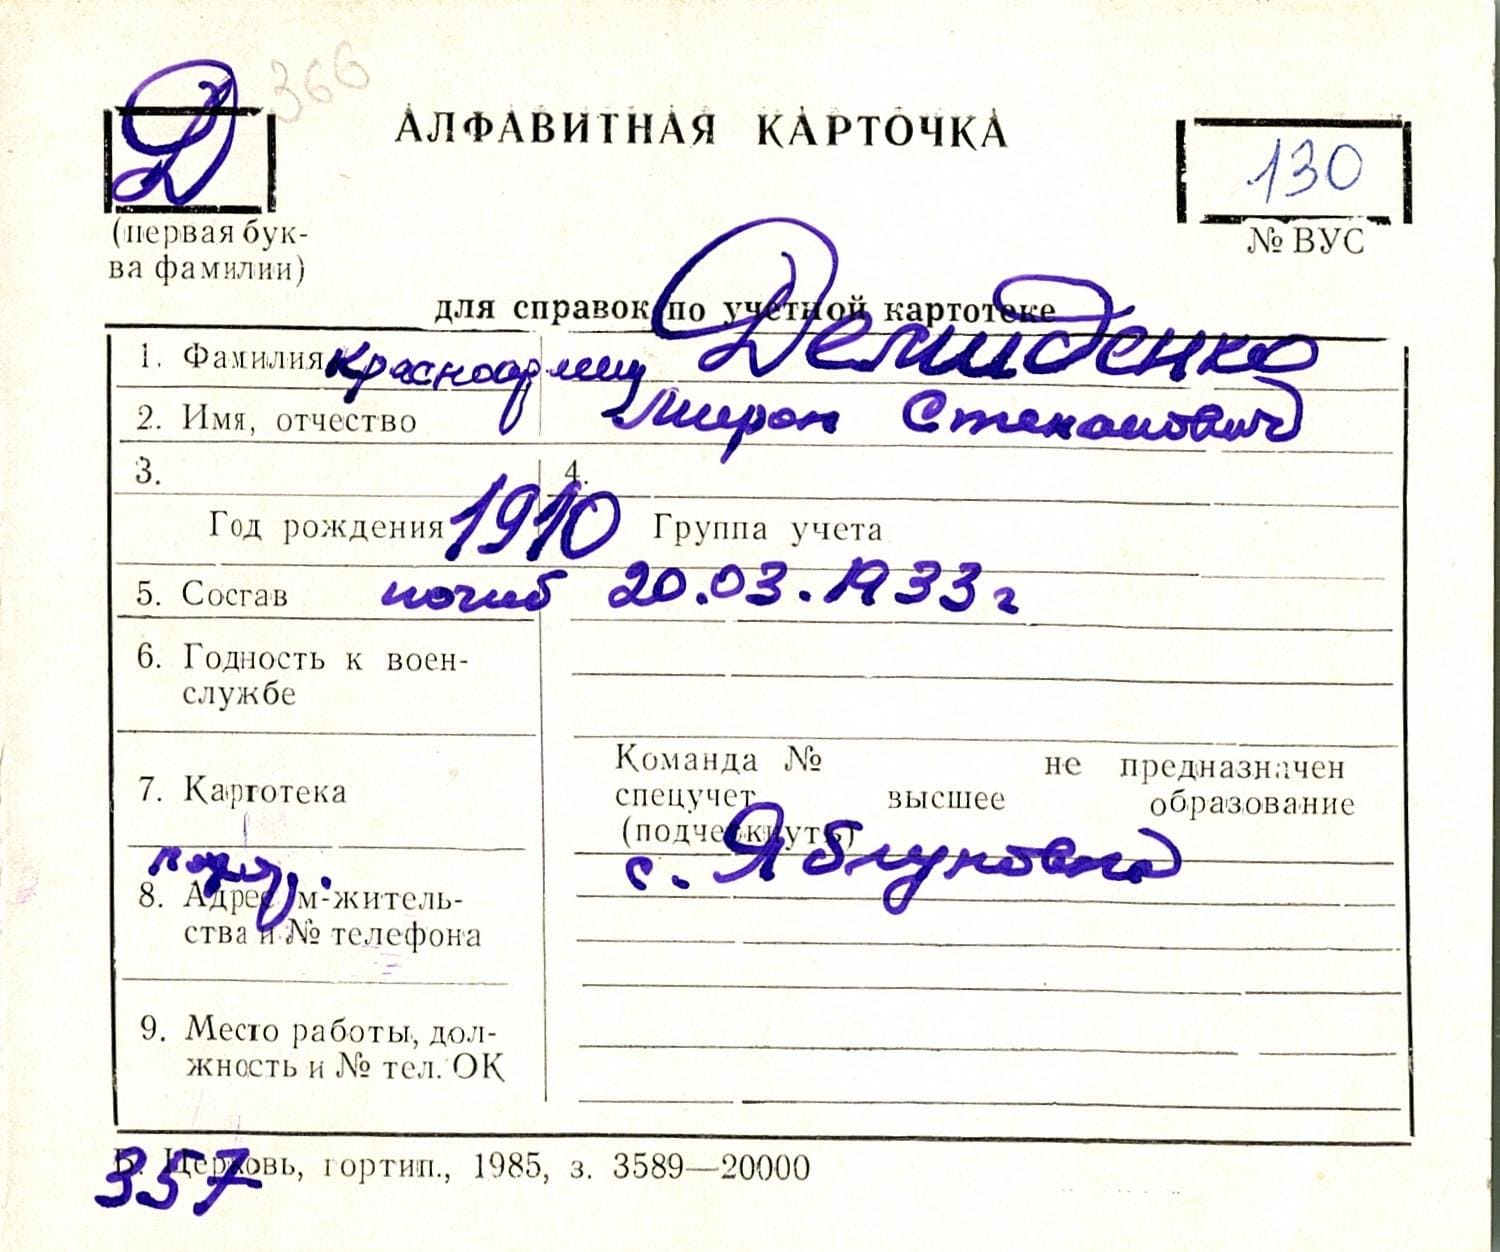 Д 366
АЛФАВИТНАЯ КАРТОЧКА
130
(первая бук-
ва фамилии)
№ ВУС
для справок по учетной картотеке
1. Фамилия красноармец Демиденко
2. Имя, отчество Мирон Степанович
3. 4.
Год рождения 1910 Группа учета
5. Состав погиб 20.03.1933 г
6. Годность к воен-
службе
7. Картотека
Команда № не предназначен
спецучет высшее образование
(подчеркнуть)
с. Яблуновка
8. Адрес м-житель-
ства и № телефона
9. Место работы, дол-
жность и № тел. ОК
Б. Церковь, гортип., 1985, з. 3589—20000
357